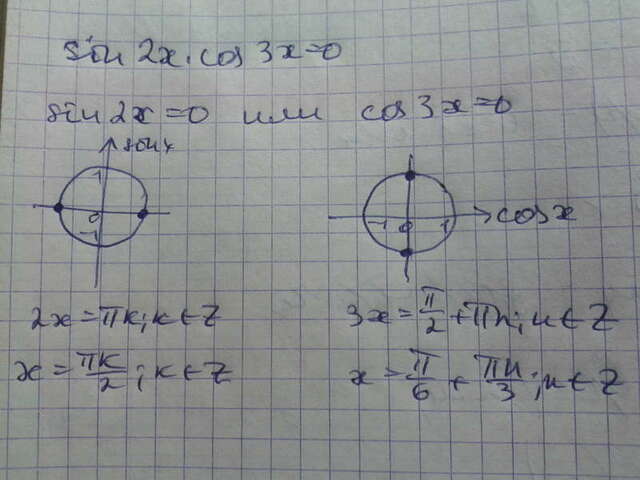 sin 2x · cos 3x = 0
sin 2x = 0 или cos 3x = 0
sin x
1
0
-1
cos x
-1 0 1
2x = πk; k ∈ Z
x = πk/2; k ∈ Z
3x = π/2 + πn; n ∈ Z
x = π/6 + πn/3; n ∈ Z